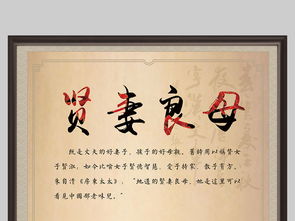 贤妻良母
既是丈夫的好妻子，孩子的好母亲。旧时用以称赞女
子贤淑，如今比喻女子贤德智慧，爱子持家，教子有方。
朱自清《房东太太》：“她道的贤妻良母，她是这里可以
看见中国那老味儿。”